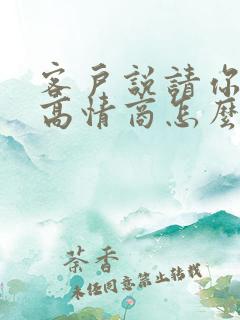 客戶説請你
高情商怎麼
茶香
未经同意禁止转载